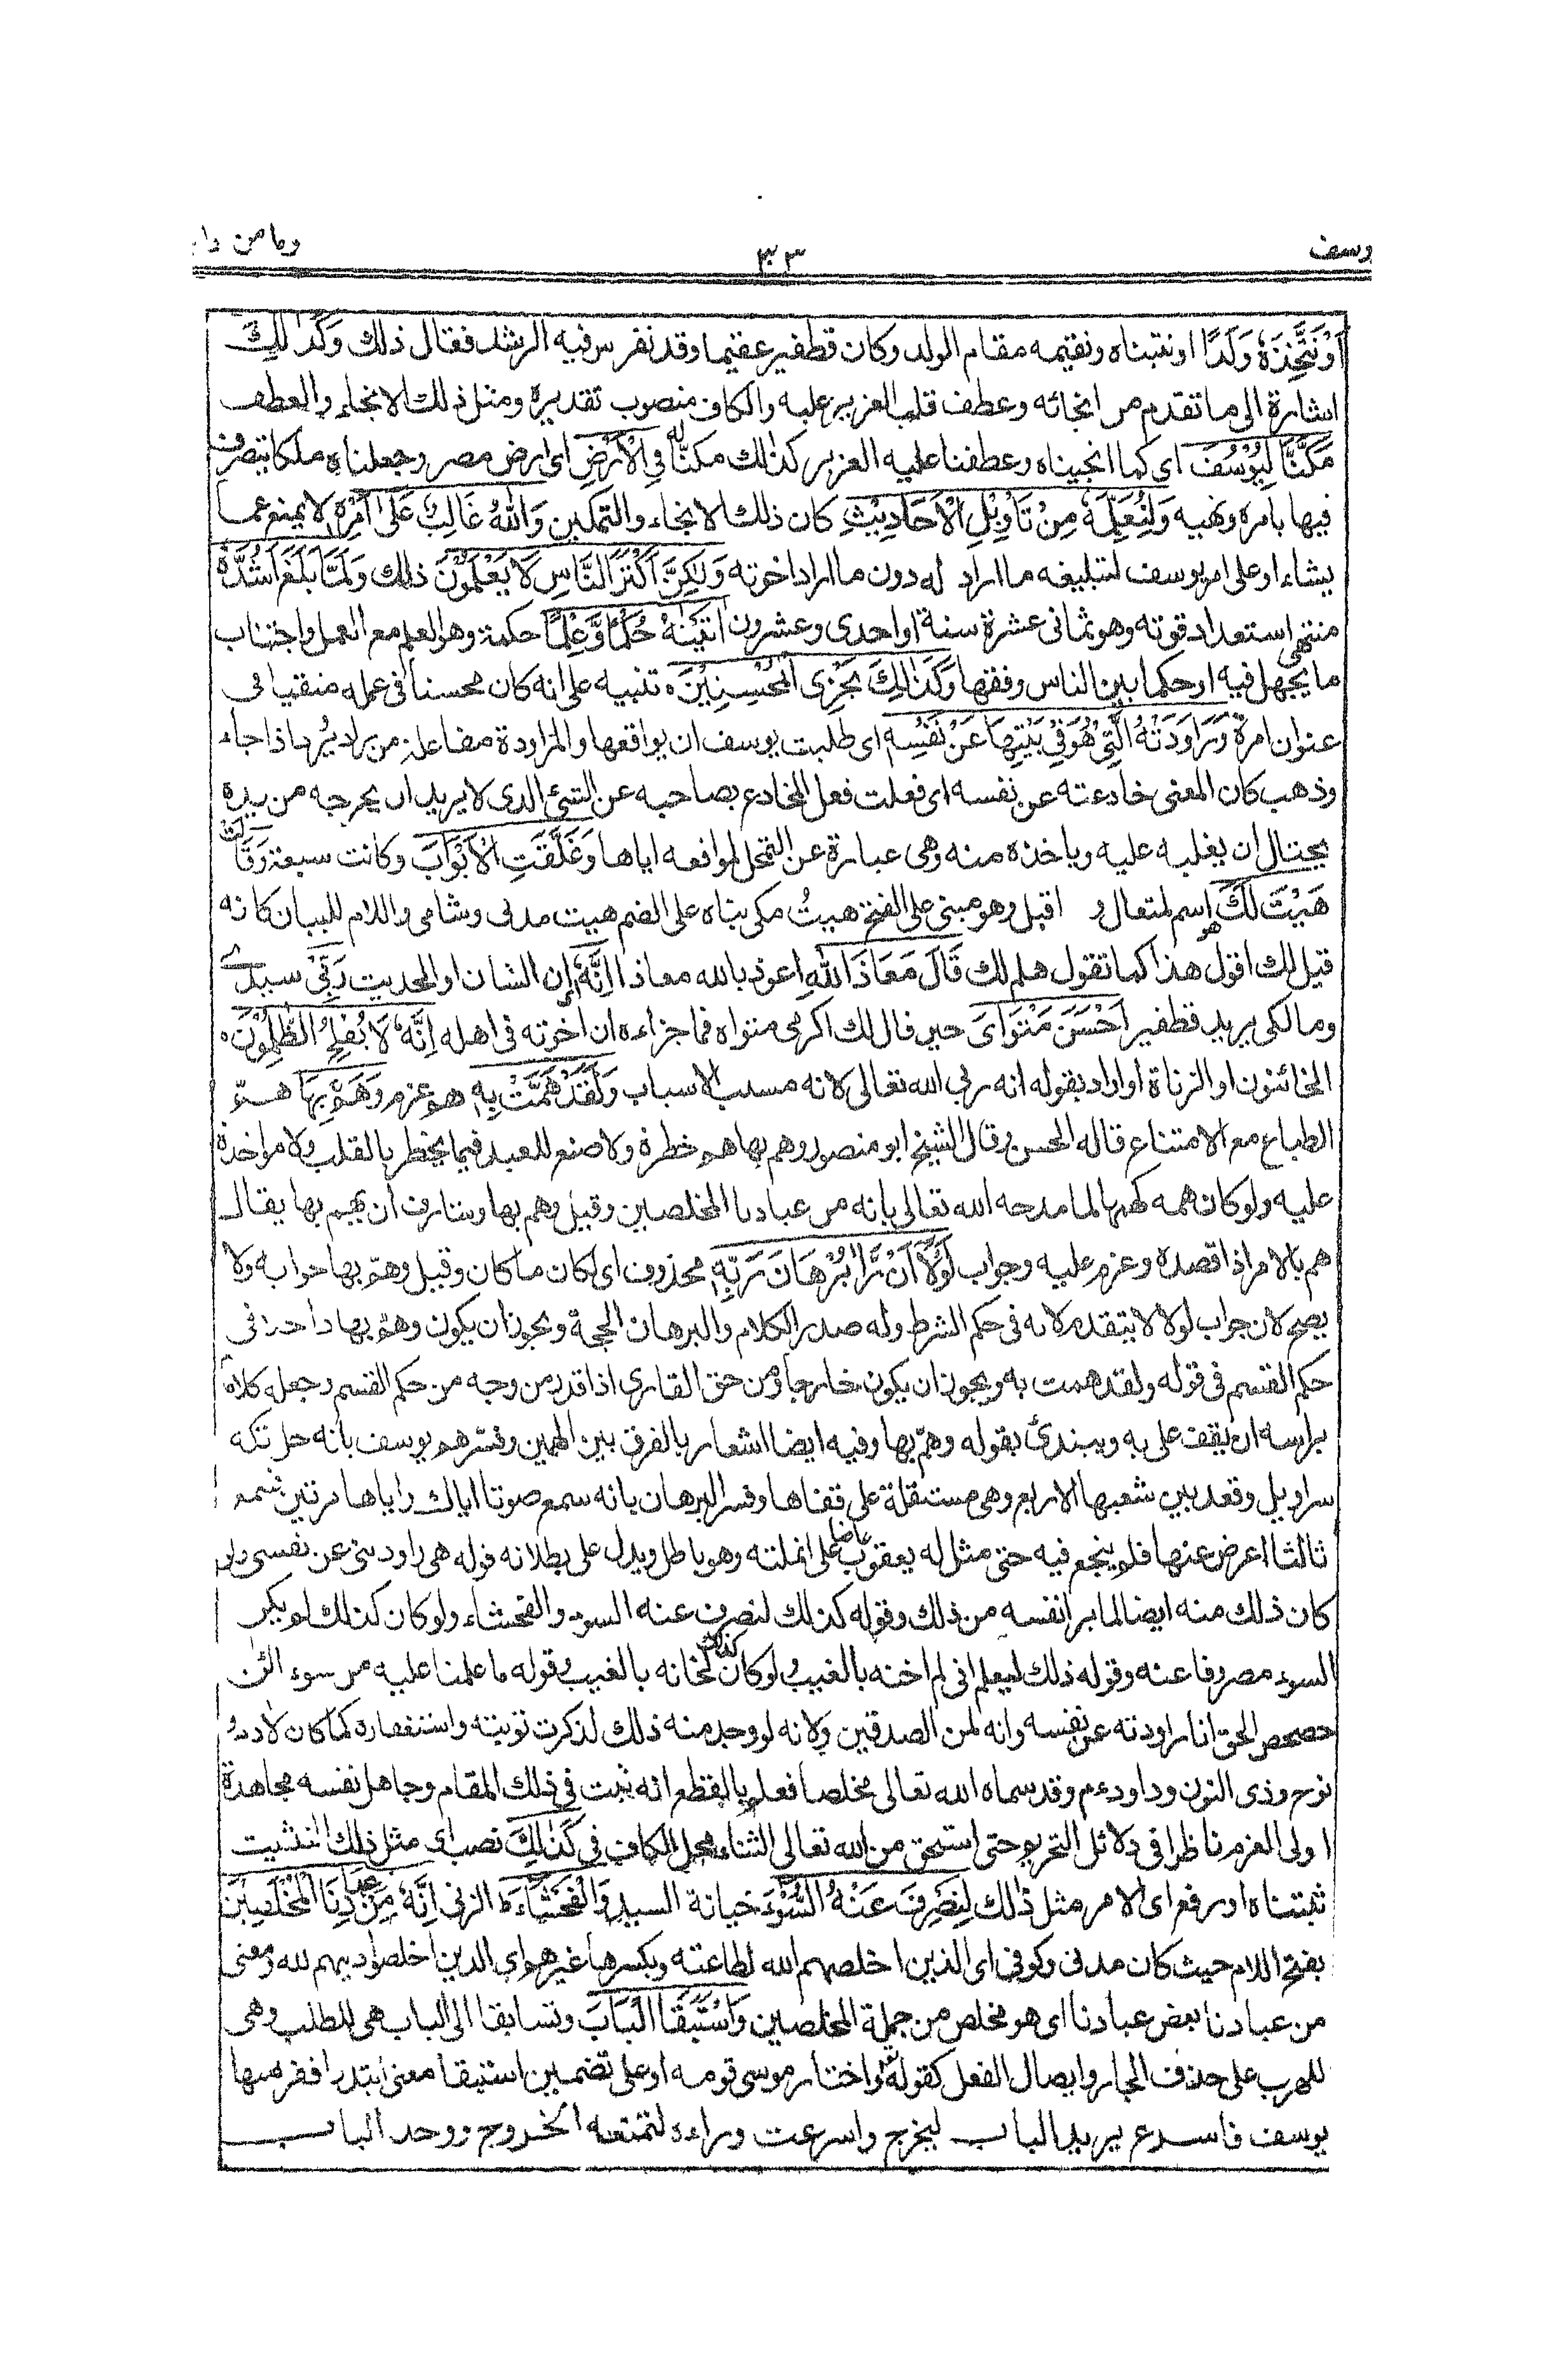 وسف ٣٣ وما من دا
اَوْ نَتَّخِذَهٗ وَلَدًا او نتبناه ونقيمه مقام الولد وكان قطفير عقيما وقد تفرس فيه الرشد فقال ذلك وَكَذٰلِكَ
اشارة الى ما تقدم من انجائه وعطف قلب العزيز عليه والكاف منصوب تقديره ومثل ذلك الانجاء والعطف
مَكَّنَّا لِيُوْسُفَ اى كما انجيناه وعطفنا عليه العزيز كذلك مكنا له فِي الْاَرْضِ اى ارض مصر وجعلناه ملكا يتصرف
فيها بامره ونهيه وَلِنُعَلِّمَهٗ مِنْ تَاْوِيْلِ الْاَحَادِيْثِ كان ذلك الانجاء والتمكين وَاللّٰهُ غَالِبٌ عَلٰى اَمْرِهٖ لا يمنع عما
يشاء او على امر يوسف لتبليغه ما اراد له دون ما اراد اخوته وَلٰكِنَّ اَكْثَرَ النَّاسِ لَا يَعْلَمُوْنَ ذلك وَلَمَّا بَلَغَ اَشُدَّهٗ
منتهى استعداد قوته وهو ثمانى عشرة سنة او احدى وعشرون اٰتَيْنٰهُ حُكْمًا وَّعِلْمًا حكمة وهو العلم مع العمل واجتناب
ما يجهل فيه او حكما بين الناس وفقها وَكَذٰلِكَ نَجْزِى الْمُحْسِنِيْنَ ه تنبيه على انه كان محسنا فى عمله متقيا فى
عنوان امره وَرَاوَدَتْهُ الَّتِيْ هُوَ فِيْ بَيْتِهَا عَنْ نَفْسِهٖ اى طلبت يوسف ان يواقعها والمراودة مفاعلة من راد يرود اذا جاء
وذهب كان المعنى خادعته عن نفسه اى فعلت فعل المخادع بصاحبه عن الشئ الذى لا يريد ان يخرجه من يده
يحتال ان يغلبه عليه وياخذه منه وهى عبارة عن التمحل لمواقعه اياها وَغَلَّقَتِ الْاَبْوَابَ وكانت سبعة وَقَالَتْ
هَيْتَ لَكَ هو اسم لتعال و اقبل وهو مبنى على الفتح هيتُ مكى بناه على الضم هيت مدنى وشامى واللام للبيان كانه
قيل لك اقول هذا كما تقول هلم لك قَالَ مَعَاذَ اللّٰهِ اعوذ بالله معاذا اِنَّهٗ اى ان الشان او الحديث رَبِّيْ سيدى
ومالكى يريد قطفير اَحْسَنَ مَثْوَاىَ حين قال لك اكرمى مثواه فما جزاءه ان اخونه فى اهله اِنَّهٗ لَا يُفْلِحُ الظّٰلِمُوْنَ ه
الخائنون او الزناة او اراد بقوله انه ربى الله تعالى لانه مسبب الاسباب وَلَقَدْ هَمَّتْ بِهٖ هم عزم وَهَمَّ بِهَا هم
الطباع مع الامتناع قاله الحسن وقال الشيخ ابو منصور وهم بها هم خطرة ولا صنع للعبد فيما يخطر بالقلب ولا مواخذة
عليه ولو كان همه كهمها لما مدحه الله تعالى بانه من عبادنا المخلصين وقيل وهم بها وشارف ان يهم بها يقال
هم بالامر اذا قصده وعزم عليه وجواب لَوْلَا اَنْ رَّاٰ بُرْهَانَ رَبِّهٖ محذوف اى لكان ما كان وقيل وهمّ بها جوابه ولا
يصح لان جواب لولا لا يتقدم لانه فى حكم الشرط وله صدر الكلام والبرهان الحجة ويجوز ان يكون وهم بها داخلا فى
حكم القسم فى قوله ولقد همت به ويجوز ان يكون خارجا ومن حق القارى اذا قدر من وجه من حكم القسم وجعله كلاما
براسه ان يقف على به ويبتدئ بقوله وهم بها وفيه ايضا اشعار بالفرق بين الهمين وفسر هم يوسف بانه حل تكه
سراويل وقعد بين شعبها الاربع وهى مستلقية على قفاها وفسر البرهان بانه سمع صوتا اياك واياها مرتين فسمع
ثالثا اعرض عنها فلم ينجع فيه حتى مثل له يعقوب عاضا على انملته وهو باطل ويدل على بطلانه قوله هى راودتنى عن نفسى ولو
كان ذلك منه ايضا لما برأ نفسه من ذلك وقوله كذلك لنصرف عنه السوء والفحشاء ولو كان كذلك لم يكن
السوء مصروفا عنه وقوله ذلك ليعلم انى لم اخنه بالغيب ولو كان كذلك لخانه بالغيب وقوله ما علمنا عليه من سوء الئن
حصحص الحق انا راودته عن نفسه وانه لمن الصدقين ولانه لو وجد منه ذلك لذكرت توبته واستغفاره كما كان لادم و
نوح وذى النون وداود ءم وقد سماه الله تعالى مخلصا فعلم بالقطع انه ثبت فى ذلك المقام وجاهد نفسه مجاهدة
اولى العزم ناظرا فى دلائل التحريم حتى استحق من الله تعالى الثناء محل الكاف فى كَذٰلِكَ نصب اى مثل ذلك التثبيت
ثبتناه او رفع اى الامر مثل ذلك لِنَصْرِفَ عَنْهُ السُّوْٓءَ خيانة السيد وَالْفَحْشَآءَ ط الزنى اِنَّهٗ مِنْ عِبَادِنَا الْمُخْلَصِيْنَ
بفتح اللام حيث كان مدنى وكوفى اى الذين اخلصهم الله لطاعته وبكسرها غيرهم اى الذين اخلصوا دينهم لله ومعنى
من عبادنا بعض عبادنا اى هو مخلص من جملة المخلصين وَاسْتَبَقَا الْبَابَ وتسابقا الى الباب هى للطلب وهى
للهرب على حذف الجار وايصال الفعل كقوله واختار موسى قومه او على تضمين استبقا معنى ابتدرا ففر منها
يوسف فاسرع يريد الباب ليخرج واسرعت وراءه لتمنعه الخروج ووحد الباب